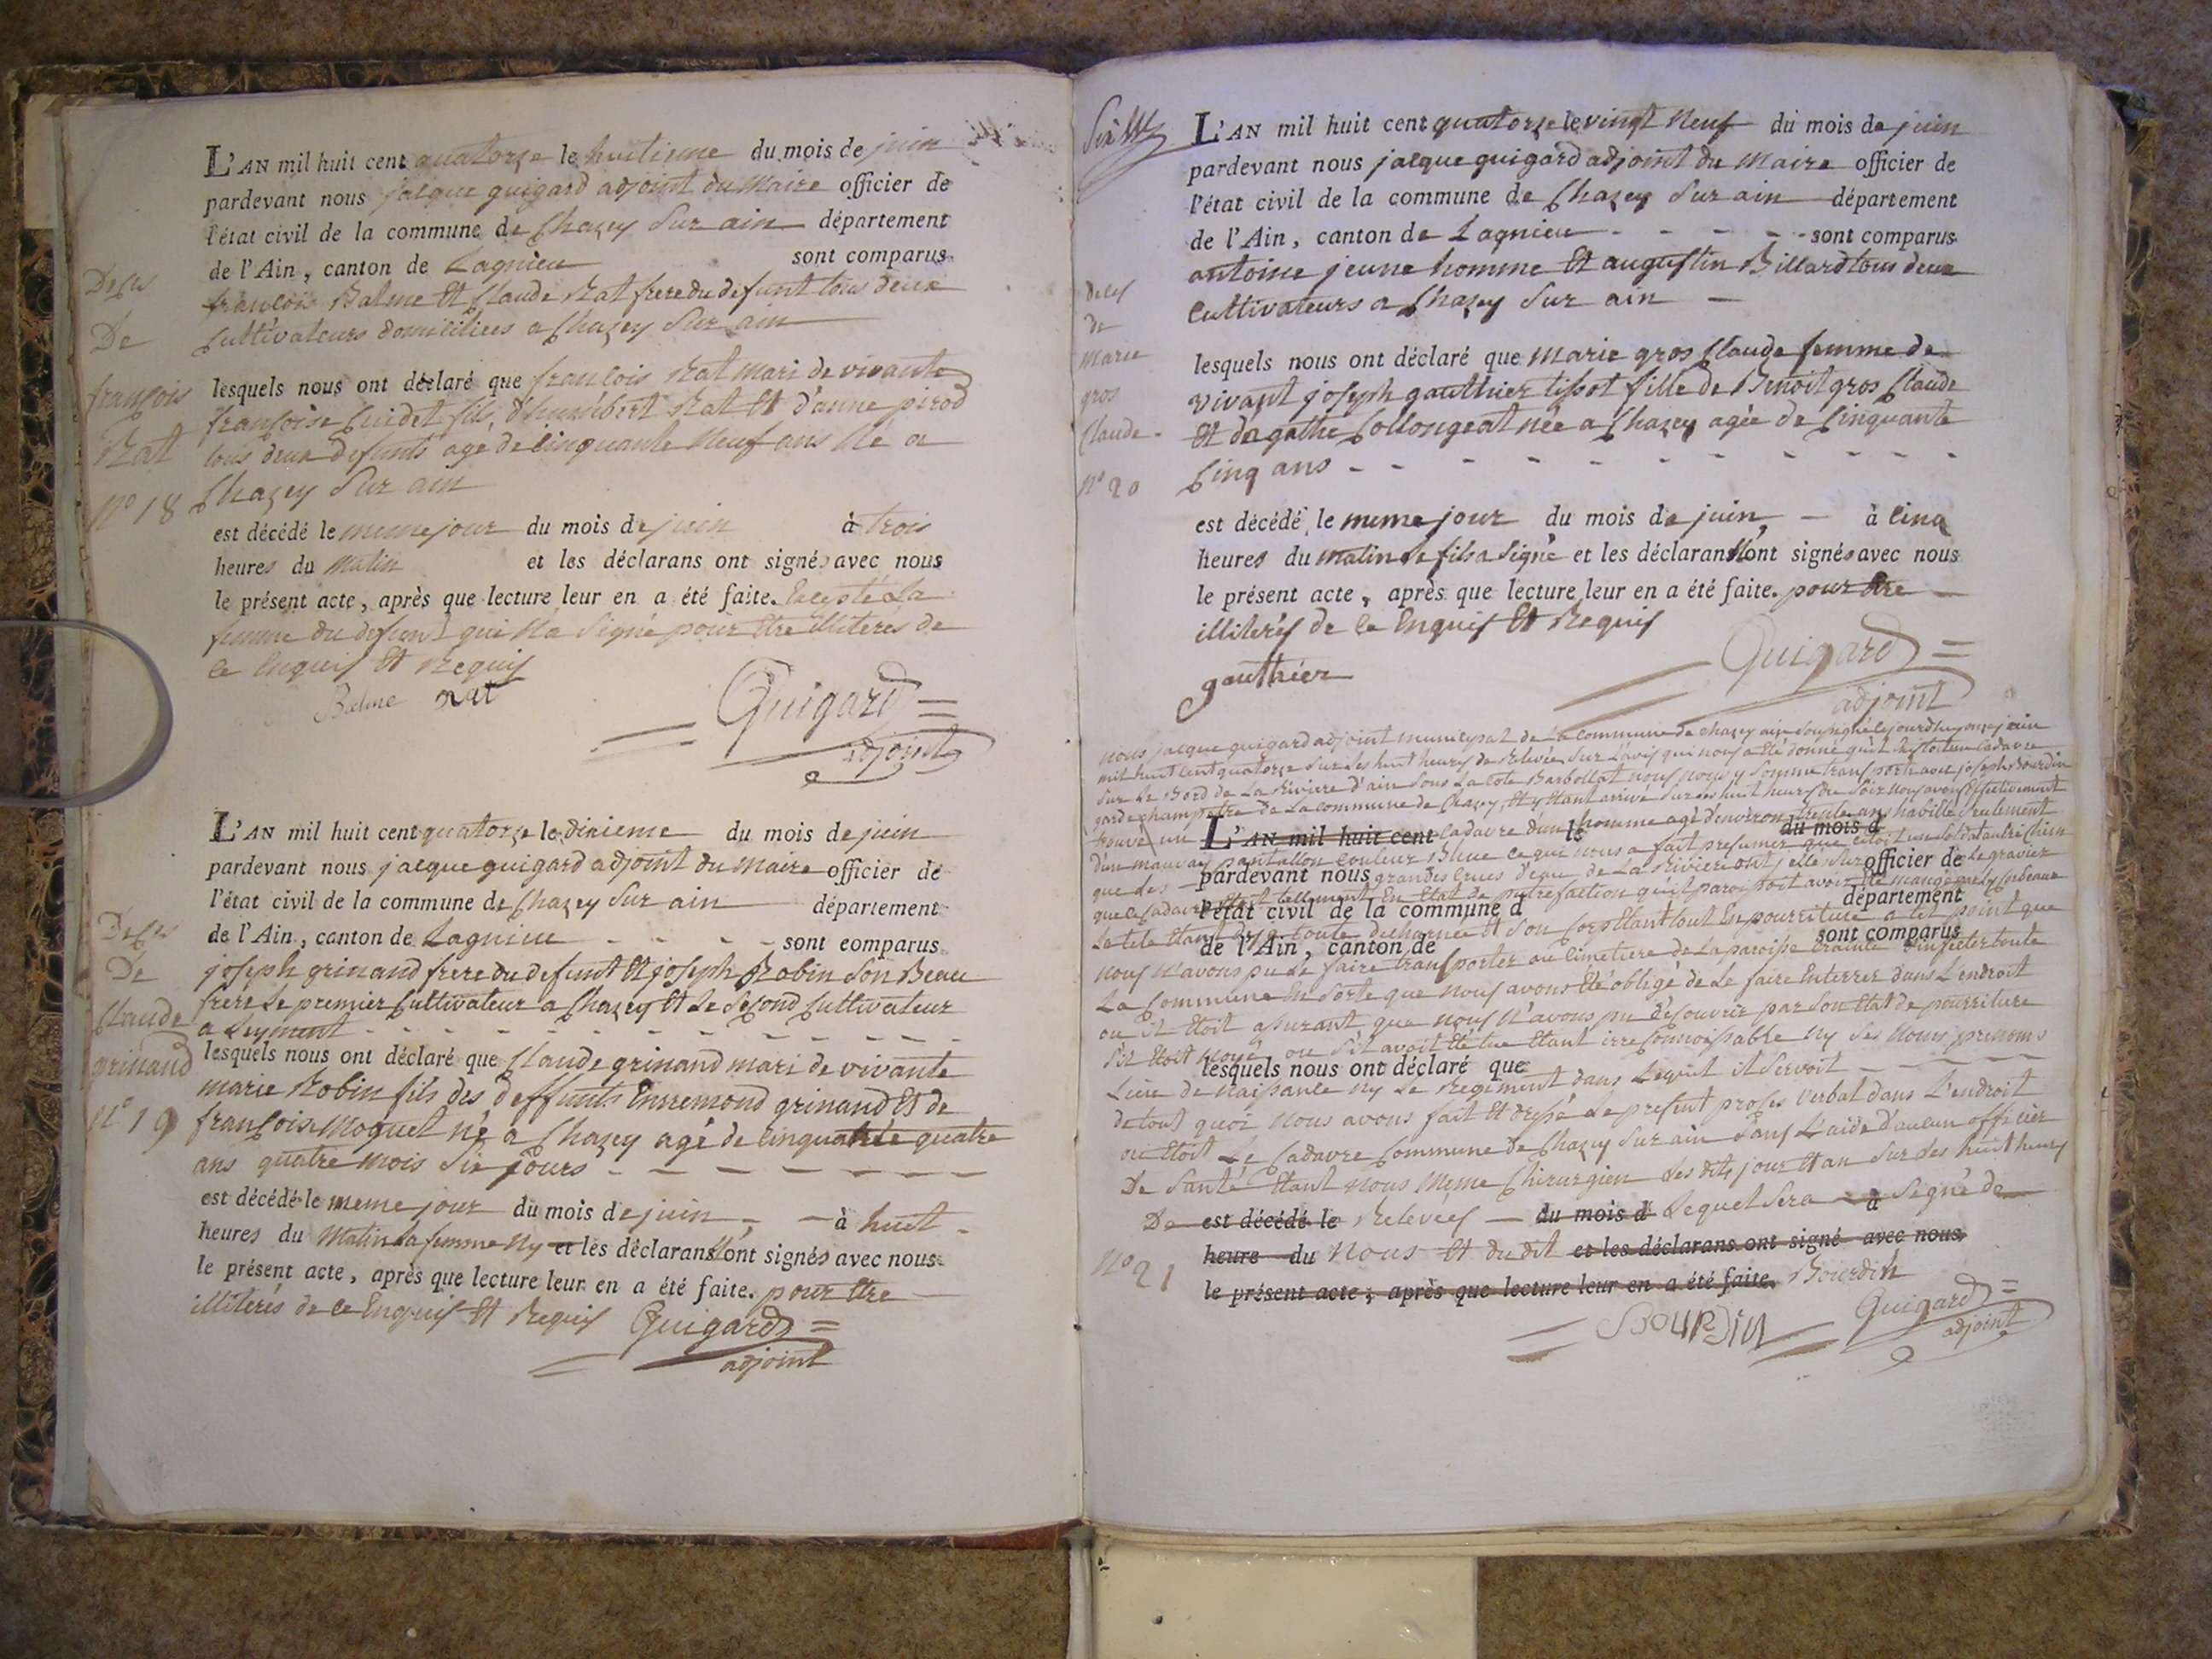 L'AN mil huit cent quatorze le huitieme du mois de juin
pardevant nous jacque guigard adjoint du Maire officier de
l'état civil de la commune de Chazey Sur ain département
de l'Ain, canton de Lagnieu sont comparus
francois Balme Et Claude Rat frere du defunt tous deux
Cultivateurs domiciliees a Chazey Sur ain
lesquels nous ont déclaré que francois Rat mari de vivante
françoise Cuidet fils d'humbert Rat Et d'anne pirod
tous deux defunts age de Cinquante Neuf ans Né a
Chazey Sur ain
Deces
De
françois
Rat
N° 18
est décédé le meme jour du mois de juin à trois
heures du Matin et les déclarans ont signés avec nous
le présent acte, après que lecture leur en a été faite. Excepté La
femme du defunt qui Na Signé pour Etre illiteres de
ce Enquis Et Requis
Balme Rat
Guigard
adjoint
L'AN mil huit cent quatorze le dixieme du mois de juin
pardevant nous jacque guigard adjoint du Maire officier de
l'état civil de la commune de Chazey Sur ain département
de l'Ain, canton de Lagnieu - - - - sont comparus
joseph grinand frere du defunt Et joseph Robin Son Beau
frere Le premier Cultivateur a Chazey Et Le Second Cultivateur
a Leyment
Deces
De
Claude
grinand
N° 19
lesquels nous ont déclaré que Claude grinand mari de vivante
marie Robin fils des deffunts Ennemond grinand Et de
françoise Moquet né a Chazey agé de Cinquante quatre
ans quatre mois Six jours
est décédé le meme jour du mois de juin, à huit
heures du Matin La femme Ny et les déclarans N'ont signés avec nous
le présent acte, après que lecture leur en a été faite. pour Etre
illiterés de ce Enquis Et Requis Guigard
adjoint
Six
L'AN mil huit cent quatorze le vingt Neuf du mois de juin
pardevant nous jacque guigard adjoint du Maire officier de
l'état civil de la commune de Chazey Sur ain département
de l'Ain, canton de Lagnieu - - - - sont comparus
antoine jeune homme Et augustin Billard tous deux
Cultivateurs a Chazey Sur ain
deces
de
marie
gros
Claude
N° 20
lesquels nous ont déclaré que Marie gros Claude femme de
vivant joseph gauthier tissot fille de Benoit gros Claude
Et dagathe Collongeat née a Chazey agée de Cinquante
Cinq ans
est décédé le meme jour du mois de juin, à Cinq
heures du matin Le fils a Signé et les déclarans N'ont signés avec nous
le présent acte, après que lecture leur en a été faite. pour Etre
illiterés de ce Enquis Et Requis
gauthier
Guigard
adjoint
nous jacque guigard adjoint municipal de La commune de Chazey ain Soussigné Cejourdhuy onze juin
mil huit Cent quatorze Sur Les huit heures de Relevée, Sur L'avis qui nous a Eté donné
Sur Le Bord de La Riviere d'ain Sous La Cote Barbollat nous nous y Somme transporté avec joseph Bourdin
garde champetre de La commune de Chazey, Et y Etant arrivé Sur Les huit heures du Soir nous avons Effectivement
trouvé un L'AN mil huit cent Cadavre d'un le homme agé d'environ trente ans habillé Seulement du mois d
d'un mauvais pantallon Couleur Bleue ce qui nous a fait presumer que cetoit un Soldat
que Les pardevant nous grandes Crues d'eau de La Riviere ont jetté Sur officier de Le gravier
que Le Cadavre Etoit tellement En Etat de putrefaction qu'il paroissoit avoir Eté mangé par Les Corbeaux
l'état civil de la commune d département
La tete Etant toute decharnée Et Son Corps Etant tout En pourriture a tel point que
de l'Ain, canton de sont comparus
nous N'avons pu Le faire transporter au Cimetiere de La paroisse Crainte D'infecter toute
La Commune En Sorte que nous avons Eté obligé de Le faire Enterrer dans L'endroit
ou il Etoit assurant que nous N'avons pu decouvrir par Son Etat de pourriture
S'il Etoit Noyé ou S'il avoit Eté tué Etant irreconnoissable Ny Ses Noms, prenoms
lesquels nous ont déclaré que
Lieu de Naissance Ny Le Regiment dans Lequel il Servoit
de tout quoi Nous avons fait Et dressé Le present proces Verbal dans L'endroit
ou Etoit Le Cadavre Commune De Chazey Sur ain Sans L'aide d'aucun officier
De Santé Etant nous Meme Chirurgien Les dits jour Et an Sur Les huit heures
De est décédé le Relevées du mois d Lequel Sera à Signé de
N° 21
heure du Nous Et du dit et les déclarans ont signé avec nous
le présent acte, après que lecture leur en a été faite. Bourdin
BOURDIN Guigard
adjoint